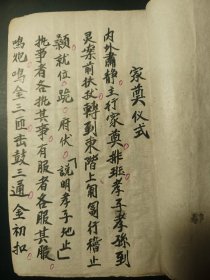 家奠仪式
内外肃静主行家奠排班孝子孝孙到
灵案前扶杖轉到東階上匍匐行稽止
顙就位跪 府伏「説明孝子地止」
执事者各执其事有服者各服其服
鳴炮鳴金三匝击鼓三通金初扣